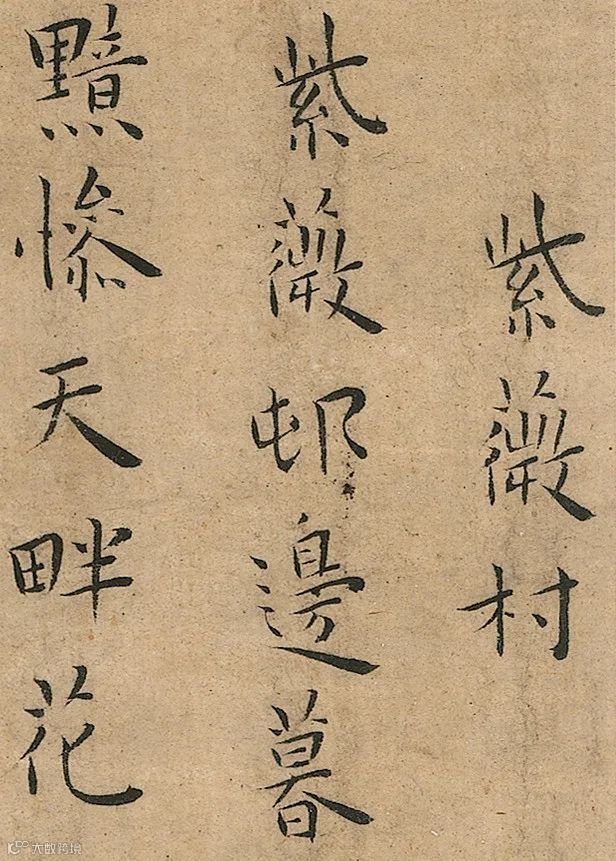 紫薇村
紫薇邨邊暮
黯慘天畔花
大数跨境